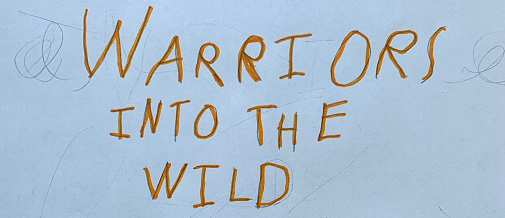 WARRIORS
INTO THE
WILD